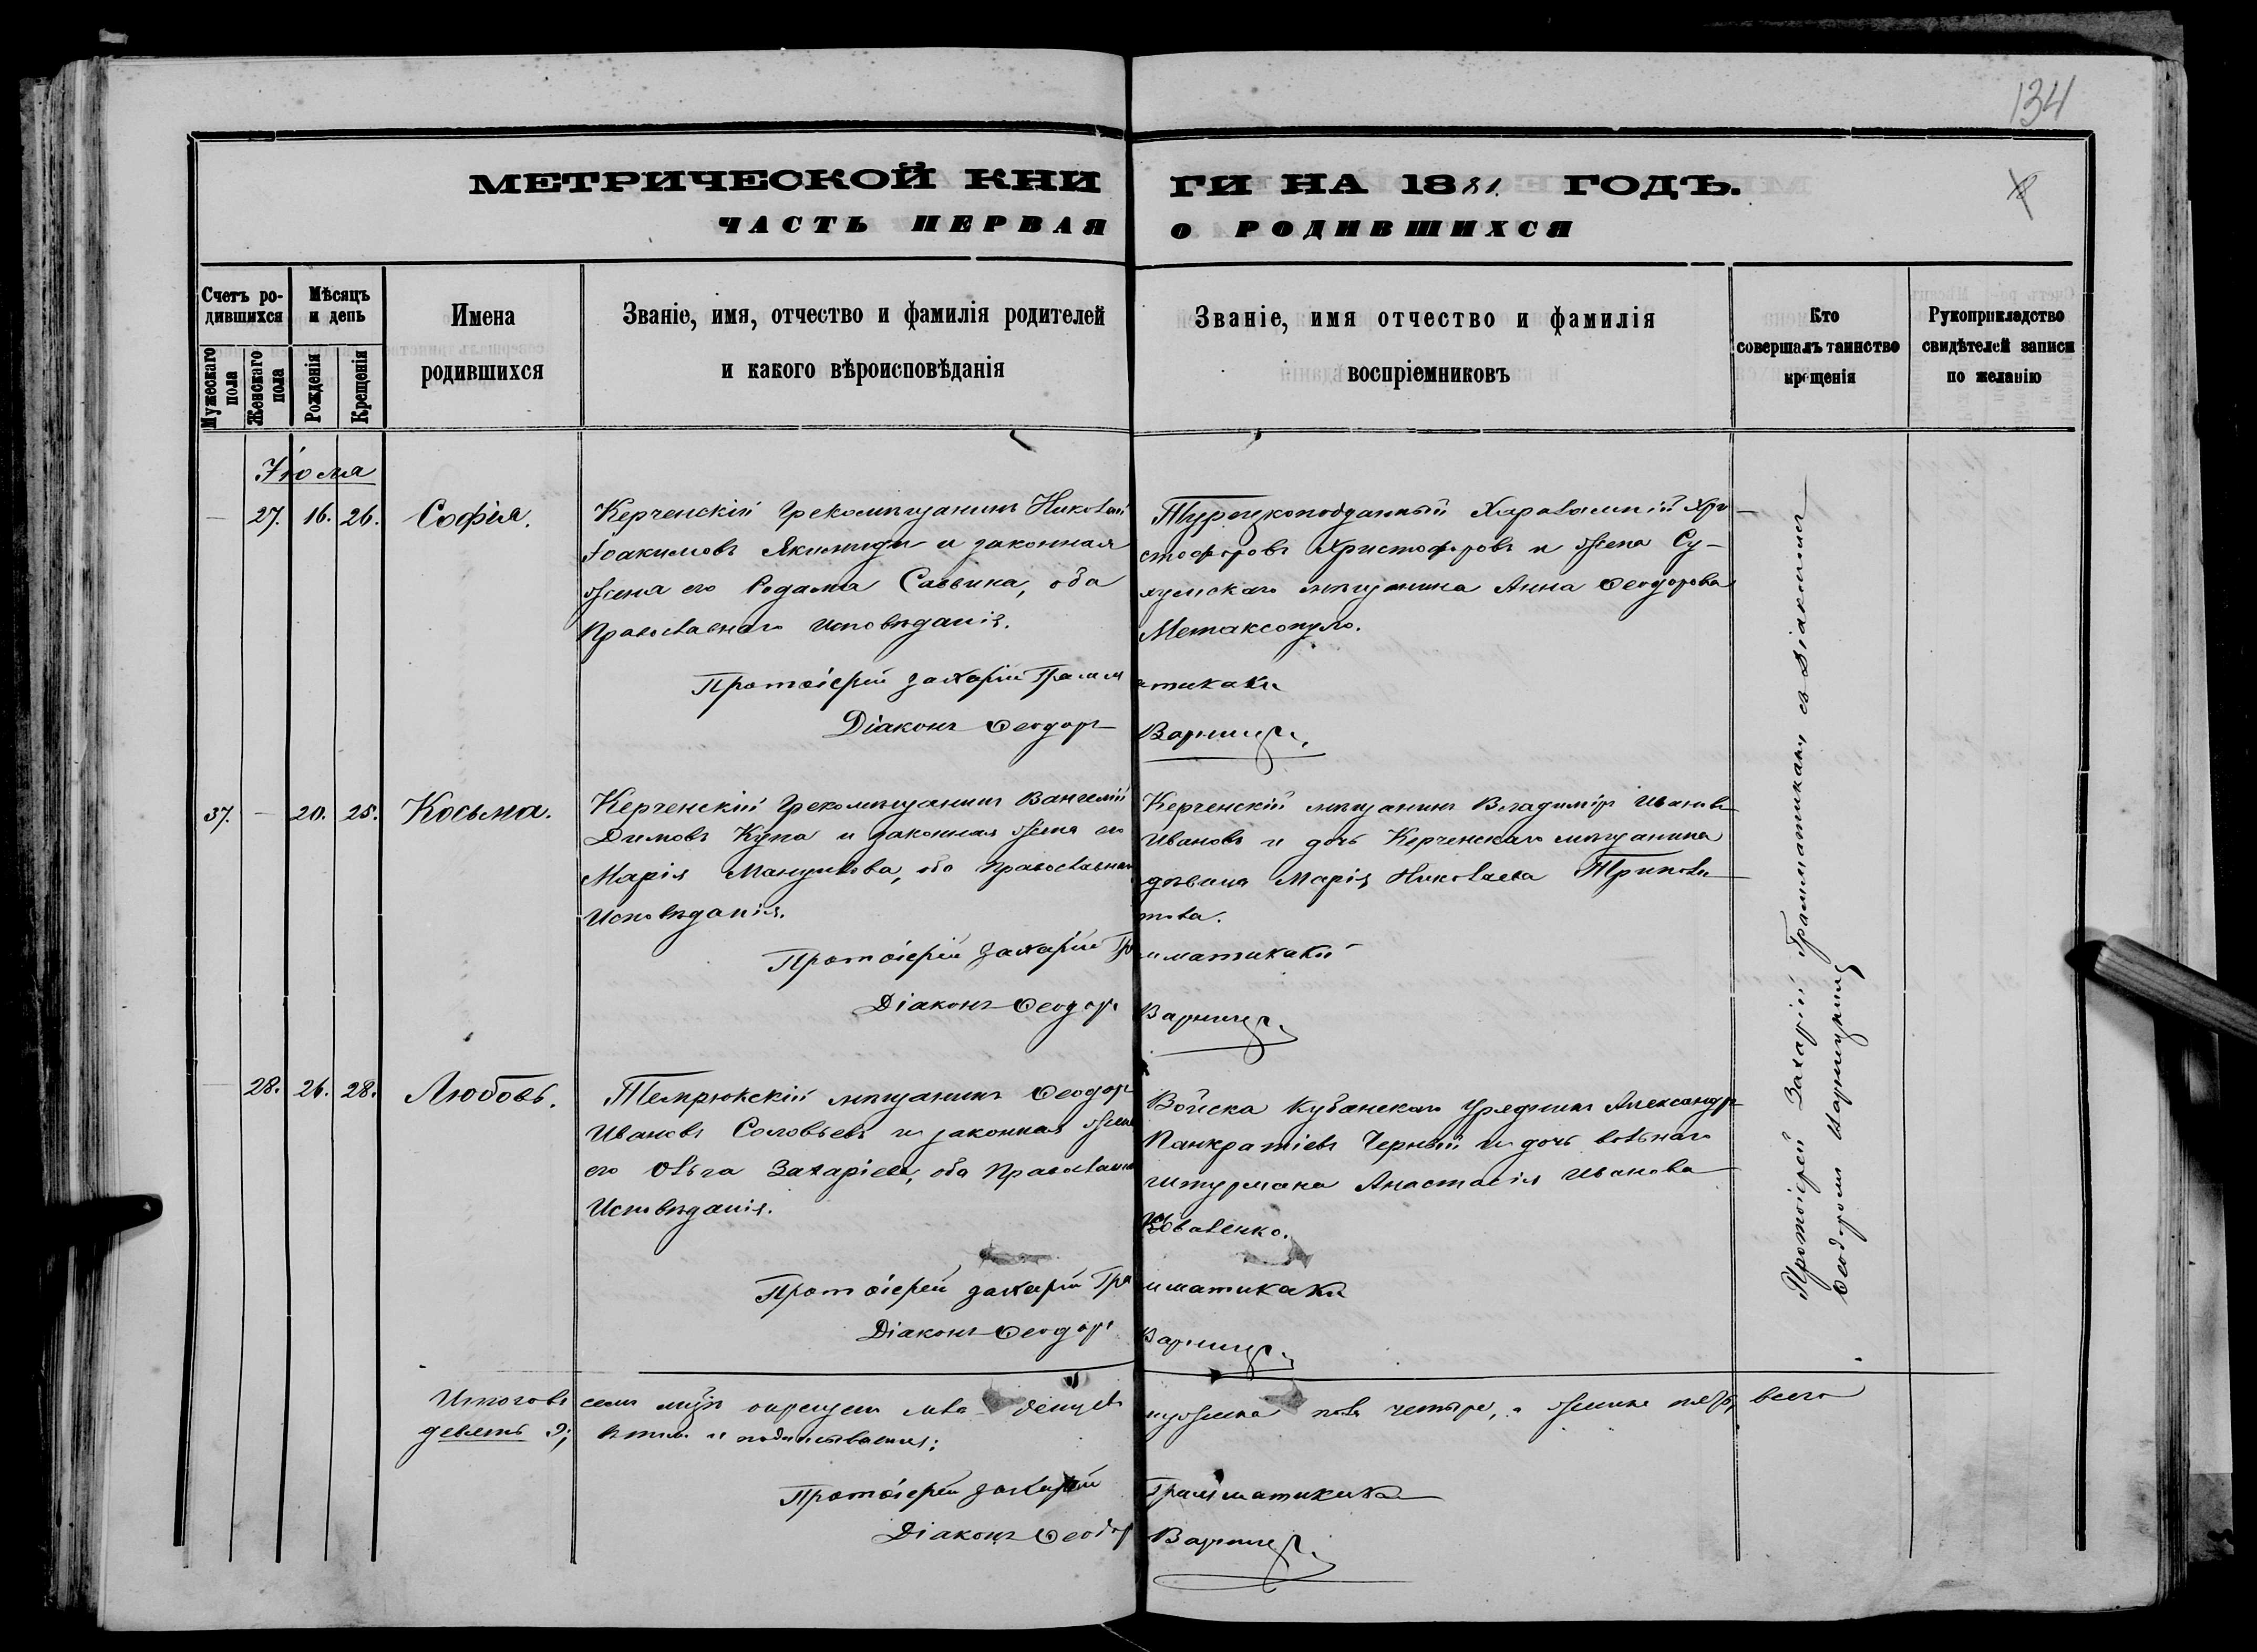 134
МЕТРИЧЕСКОЙ КНИ ГИ НА 1881. ГОДЪ.
ЧАСТЬ ПЕРВАЯ О РОДИВШИХСЯ
Счетъ ро-
дившихся
Мужескаго
пола
Женскаго
пола
Мѣсяцъ
и день
Рожденія
Крещенія
Имена
родившихся
Званіе, имя, отчество и фамилія родителей
и какого вѣроисповѣданія
Званіе, имя отчество и фамилія
воспріемниковъ
Кто
совершалъ таинство
крещенія
Рукоприкладство
свидѣтелей записи
по желанію
27. 16. 26. Софія.
Керченскій Грекомѣщанинъ Николай
Іоакимовъ Якимиди и законная
жена его Саввина, оба
Православнаго исповѣданія.
Турецкоподданный Харалампій Хри-
стофоровъ Христофоровъ и жена Су-
хумскаго мѣщанина Анна Ѳеодорова
Метаксопуло.
Протоіерей Захарій Грамматикаки
Діаконъ Ѳеодоръ
37. - 20. 25. Косьма.
Керченскій Грекомѣщанинъ Вангелій
Димовъ Купа и законная жена его
Марія Мануилова, оба Православнаго
Исповѣданія.
Керченскій мѣщанинъ Владиміръ Ивановъ
Ивановъ и дочь Керченскаго мѣщанина
дѣвица Марія Николаева
Протоіерей Захарій Грамматикаки
Діаконъ Ѳеодоръ
28. 26. 28. Любовь.
Темрюкскій мѣщанинъ Ѳеодоръ
Ивановъ Соловьевъ и законная жена
его Ольга Захаріева, оба Православнаго
Исповѣданія.
Войска Кубанскаго Урядникъ Александръ
Панкратіевъ Черный и дочь вольнаго
штурмана Анастасія Иванова
Коваленко.
Протоіерей Захарій Грамматикаки
Діаконъ Ѳеодоръ
Протоіерей Захарій Грамматикаки съ Діакономъ
Ѳеодоромъ
четыре, а женска пять, всего
девять 9;
Протоіерей Захарій Грамматикаки
Діаконъ Ѳеодоръ